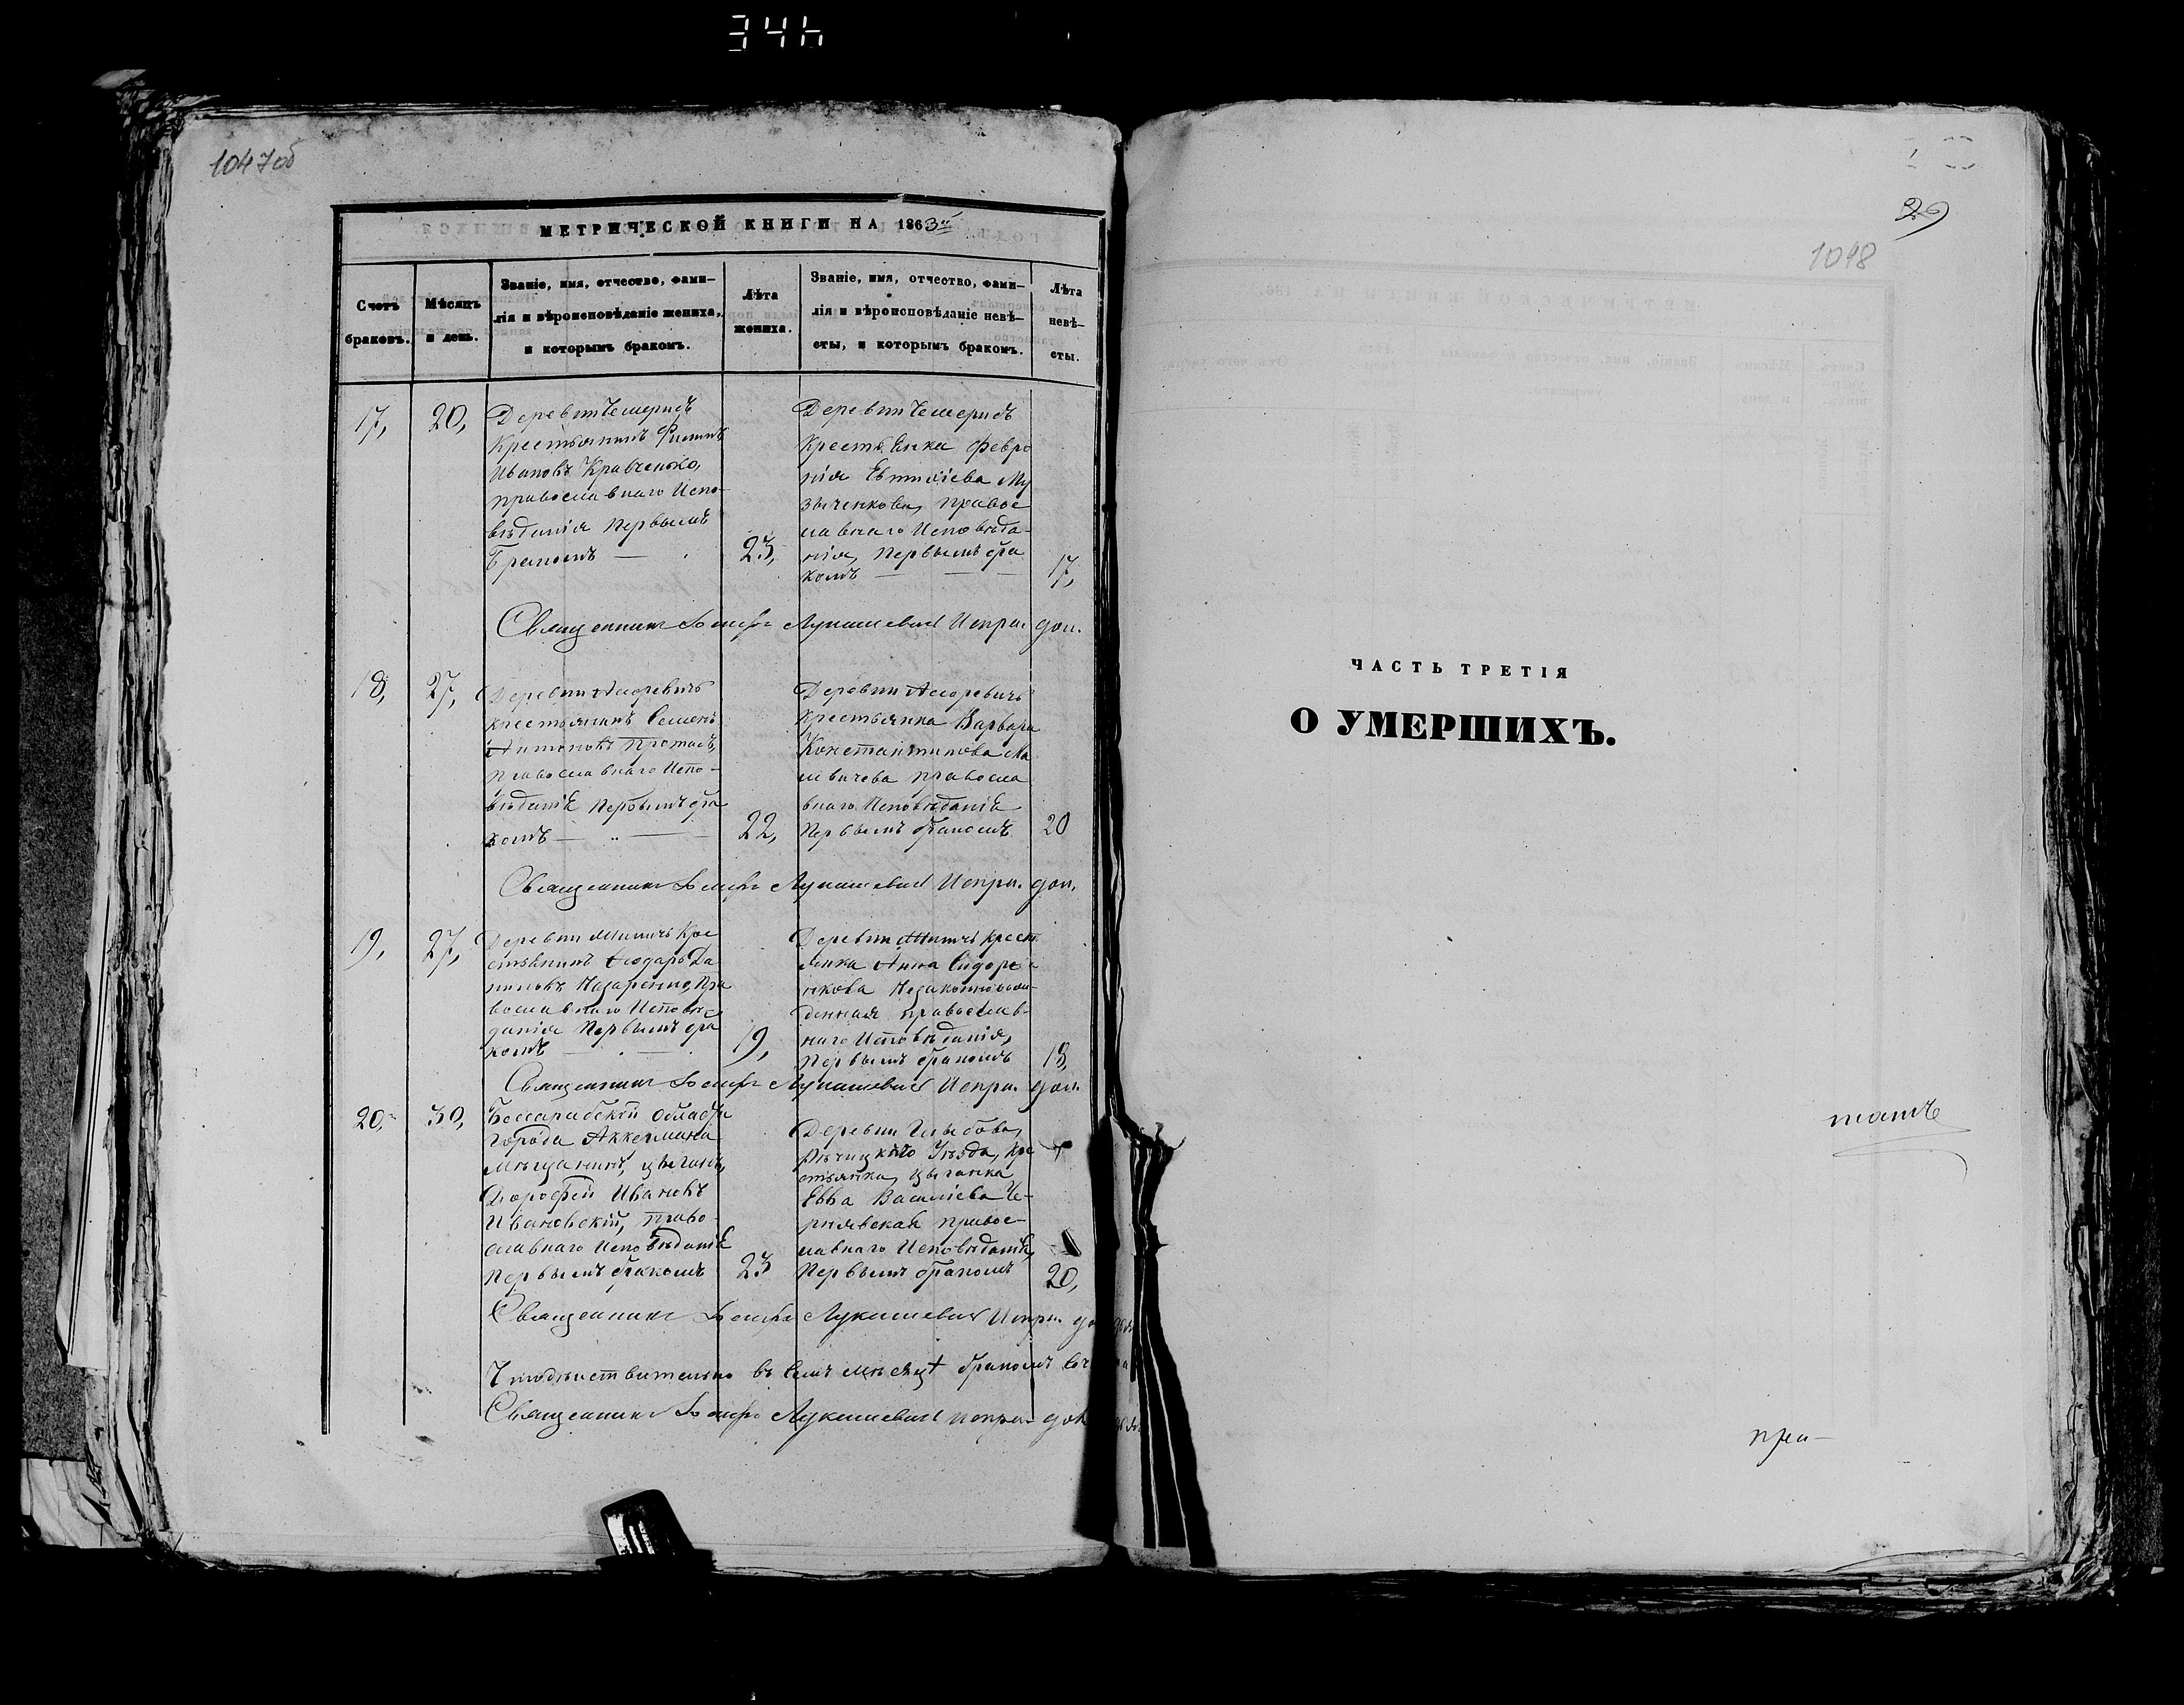 344
1047об
МЕТРИЧЕСКОЙ КНИГИ НА 1863й
Счетъ браковъ.
Мѣсяцъ и день.
Званіе, имя, отчество, фами-
лія и вѣроисповѣданіе жениха,
и которымъ бракомъ.
Лѣта жениха.
Званіе, имя, отчество, фами-
лія и вѣроисповѣданіе невѣ-
сты, и которымъ бракомъ.
Лѣта невѣ-
сты.
17, 20,
Деревни Чемерисъ
Крестьянинъ
Ивановъ Кравченко,
православнаго Испо-
вѣданія Первымъ
Бракомъ —
23,
Деревни Чемерисъ
Крестьянка Февро
нія Евтихіева Му
зыченкова, правос
лавнаго Исповѣда-
нія, Первымъ бра
комъ —
17,
Священникъ Лукашевичъ
18, 27,
Деревни
крестьянинъ Семенъ
Антоновъ
Православнаго Испо-
вѣданія Первымъ бра
комъ —
22,
Деревни
Крестьянка Варвара
Константинова
православ
внаго Исповѣданія
Первымъ бракомъ
20
Священникъ Лукашевичъ
19, 27,
Деревни Кре
стьянинъ Ѳеодоръ Да
ниловъ Назаренко, Пра
вославнаго Исповѣ
данія Первымъ бра
комъ —
19,
Деревни крест
янка Анна Сидоре
нкова Незаконнорож-
денная православ-
наго Исповѣданія,
Первымъ бракомъ
18,
Священникъ Лукашевичъ
20, 30,
Бессарабской области
города Аккермана
Мѣщанинъ, цыганъ,
Дорофей Ивановъ
Ивановскій, право-
славнаго Исповѣданія
Первымъ бракомъ
23
Деревни Глыбова,
Рѣчицкаго Уѣзда, кре
стьянка, цыганка
Евва Василіева Че-
рнявская правос-
лавнаго Исповѣданія,
Первымъ бракомъ
20,
Священникъ Лукашевичъ
Что дѣйствительно въ семъ мѣсяцѣ бракомъ
Священникъ Лукашевичъ
29
1048
ЧАСТЬ ТРЕТІЯ
О УМЕРШИХЪ.